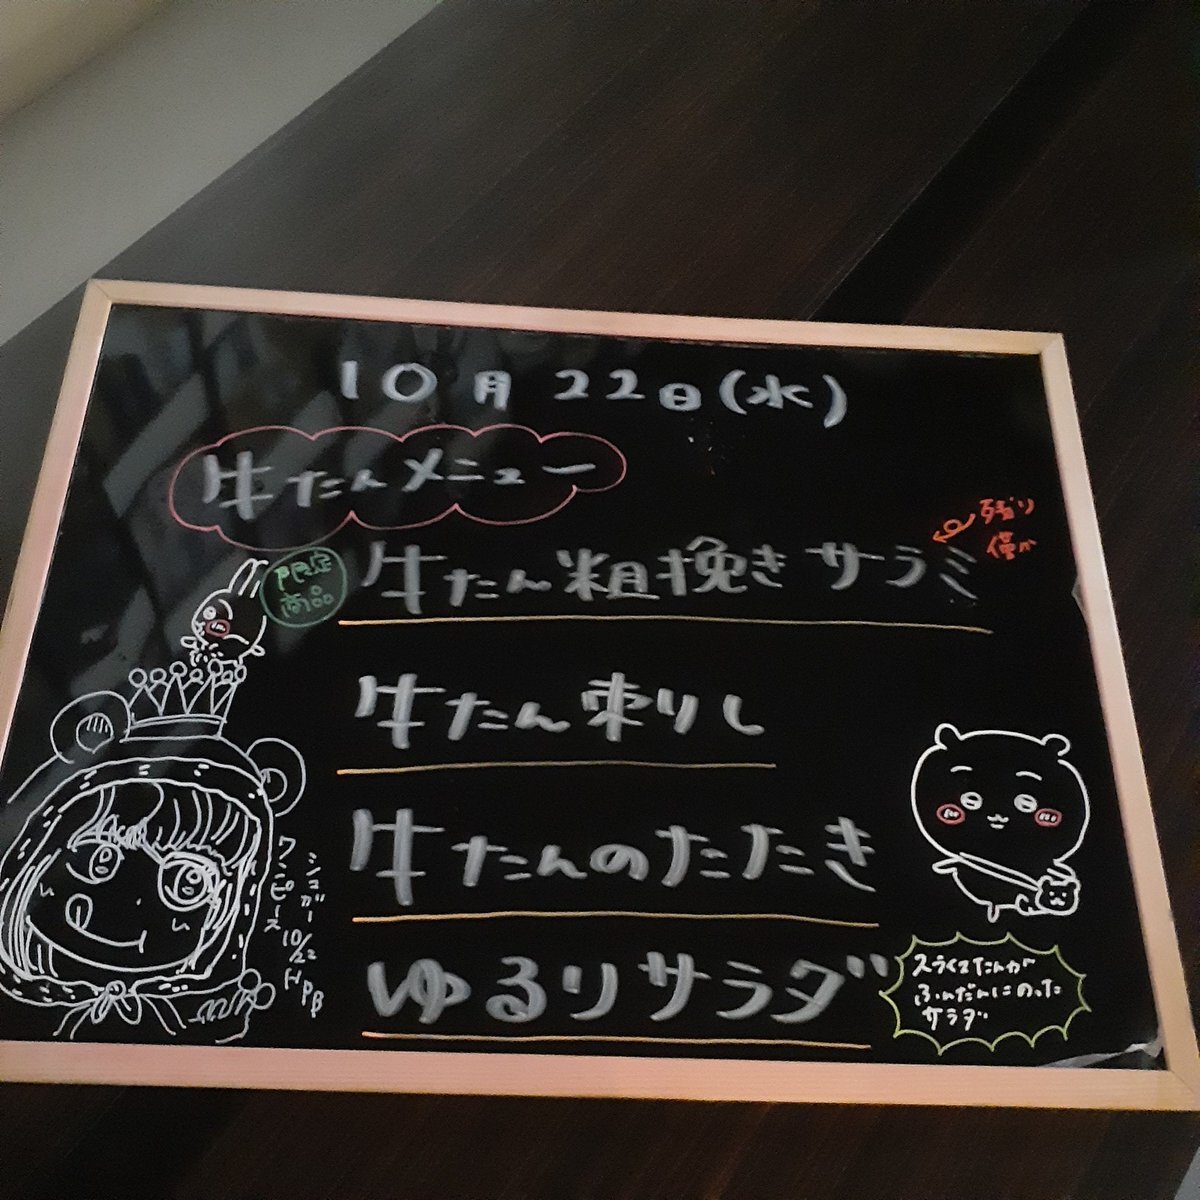 10月22日(水)
牛たんメニュー
残り
僅か
限定
商品
牛たん粗挽きサラミ
牛たん刺りし
牛たんのたたき
ゆるりサラダ
ふんだんにのった
サラダ
シュガー
ワンピース
10/22
HPB